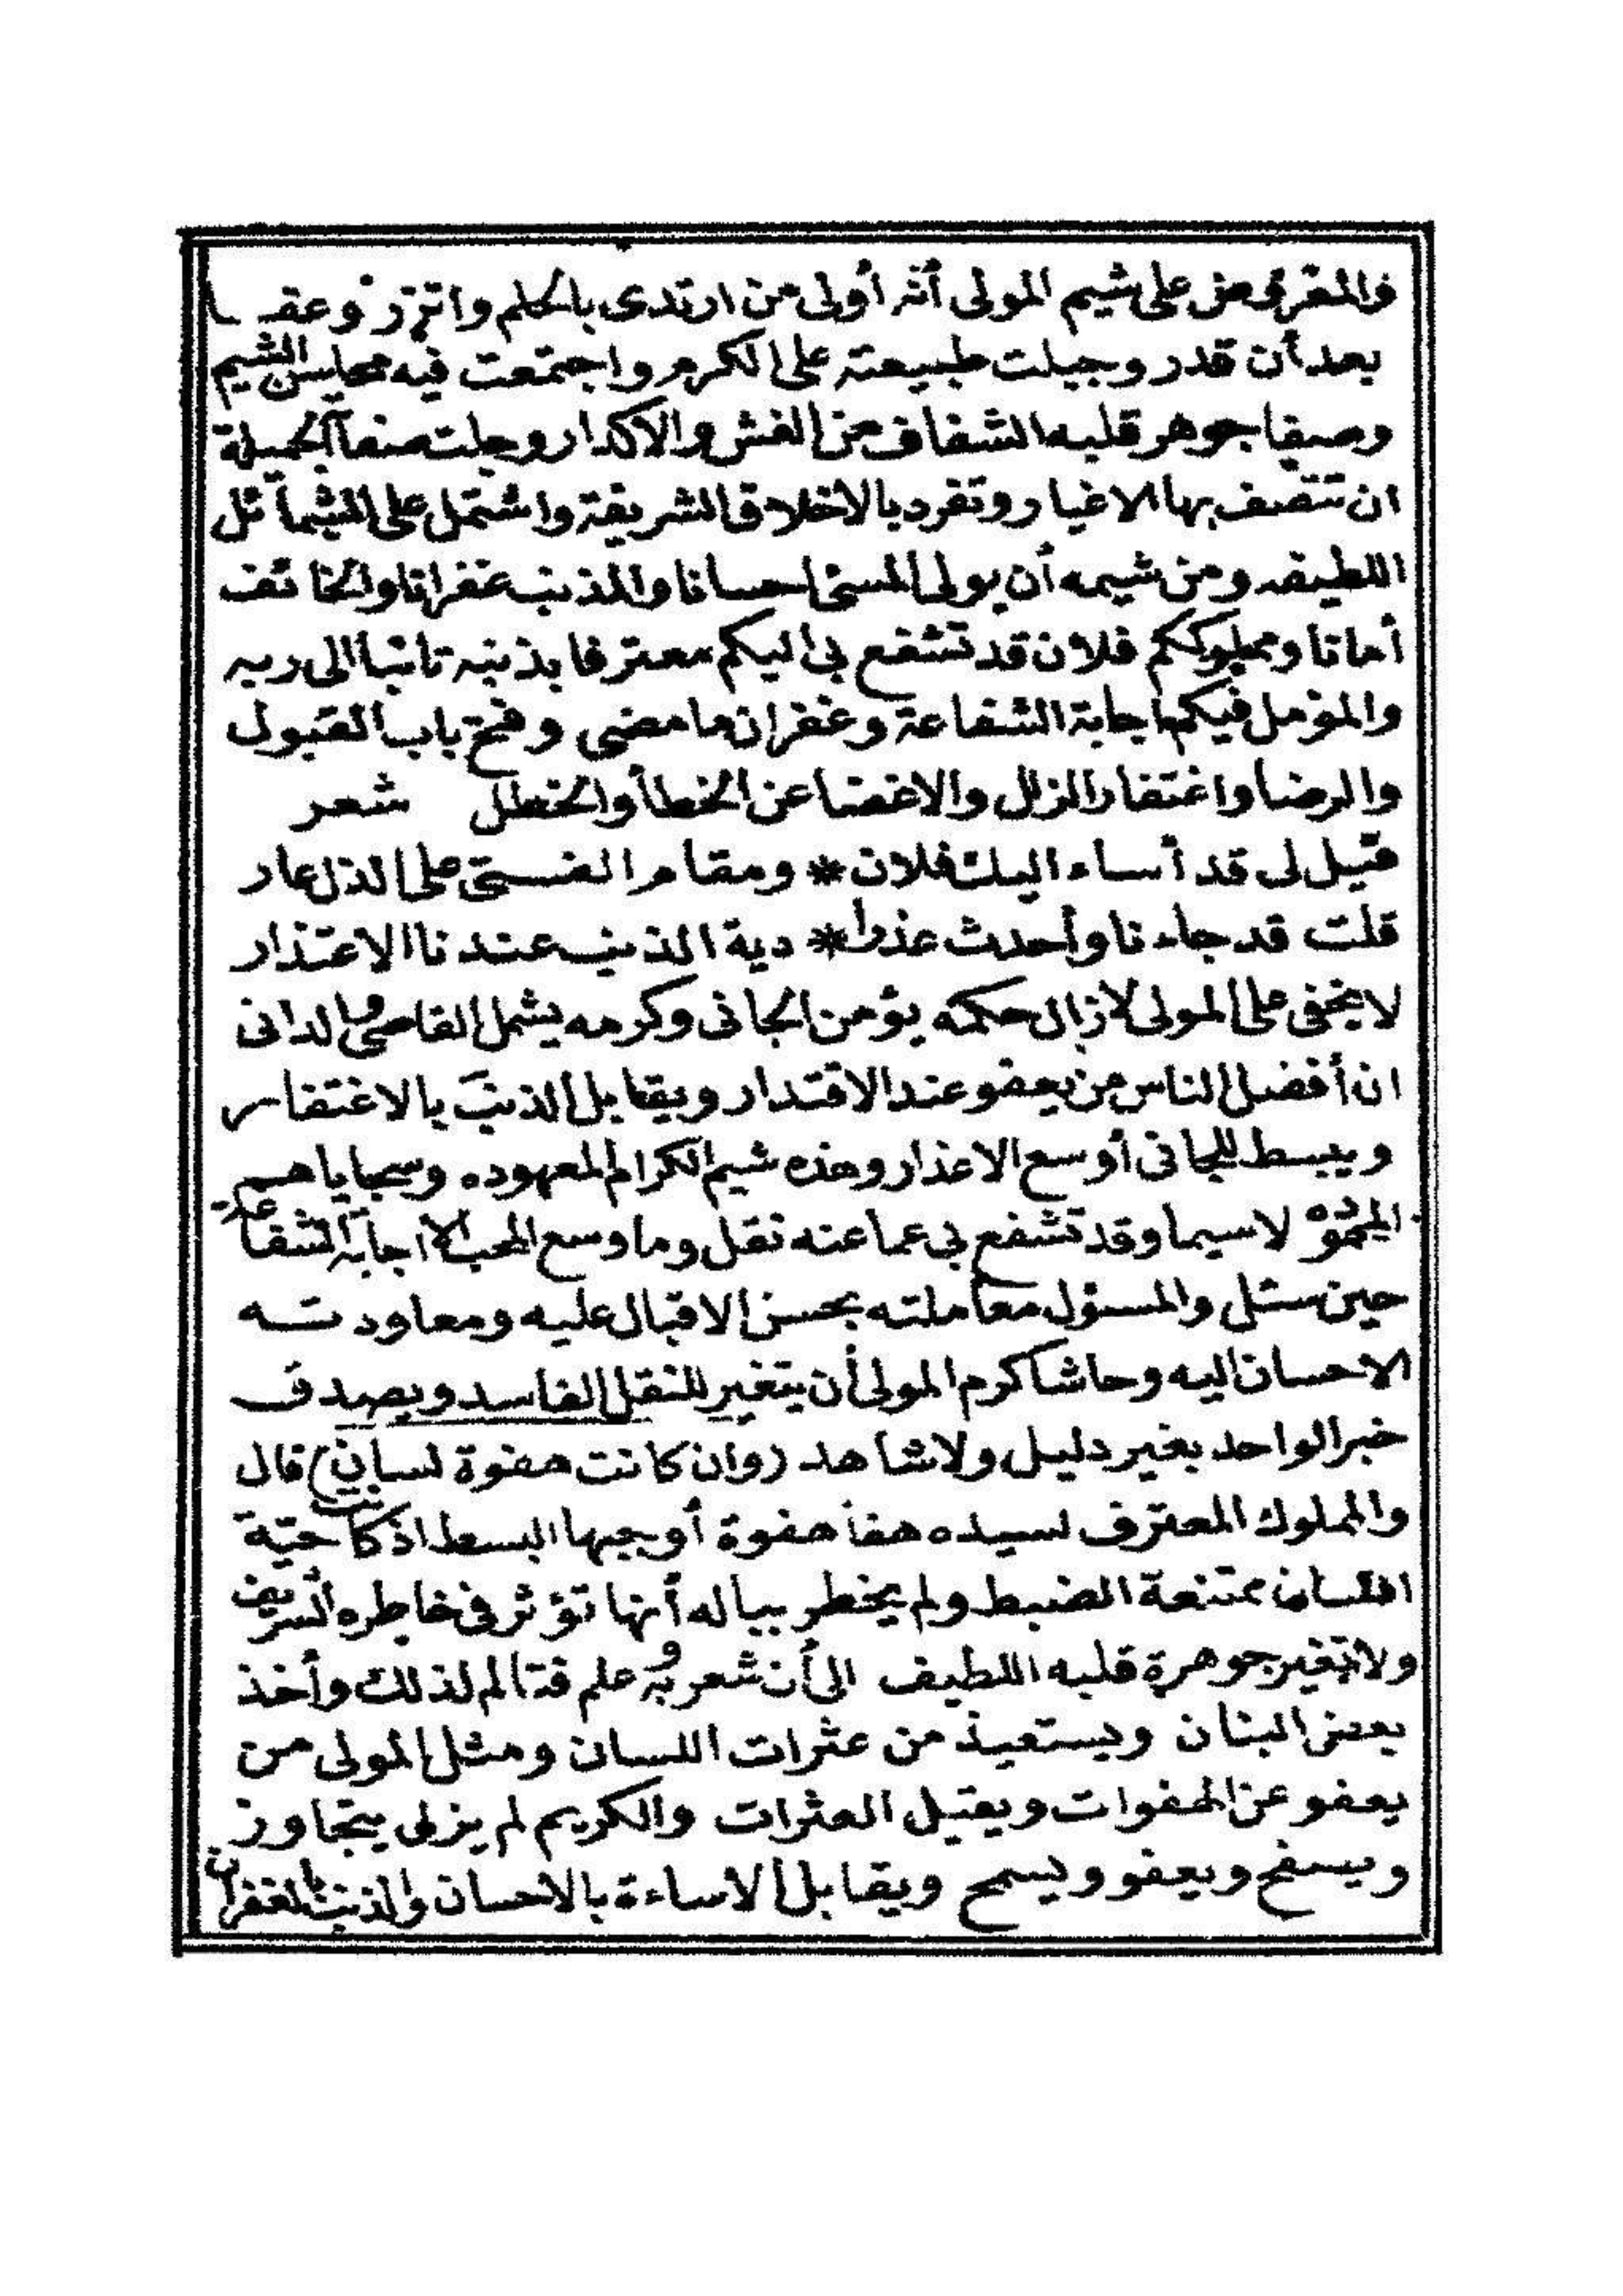 والمفروض على شيم المولى أنه أولى من ارتدى بالحلم واتزر وعفـ ـا
بعد أن قدر وجبلت طبيعته على الكرم واجتمعت فيه محاسن الشيم
وصفا جوهر قلبه الشفاف عن الغش والاكدار وجلت صفاته الجميلة
ان تتصف بها الاغيار وتفرد بالاخلاق الشريفة واشتمل على الشمائل
اللطيفه ومن شيمه أن يولى المسئ احسانا والمذنب غفرانا والخائف
أمانا ومملوككم فلان قد تشفع بى اليكم معترفا بذنبه تائبا الى ربه
والمؤمل فيكم اجابة الشفاعة وغفران ما مضى وفتح باب القبول
والرضا واغتفار الزلل والاغضا عن الخطأ والخطل شعر
قيل لى قد أساء اليك فلان * ومقام الفتى على الذل عار
قلت قد جاءنا وأحدث عذرا * دية الذنب عندنا الاعتذار
لا يخفى على المولى لا زال حكمه يؤمن الجانى وكرمه يشمل القاصى والدانى
ان أفضل الناس من يعفو عند الاقتدار ويقابل الذنب بالاغتفار
ويبسط للجانى أوسع الاعذار وهذه شيم الكرام المعهوده وسجاياهم
المحموده لاسيما وقد تشفع بى عما عنه نقل وما وسع المحب الا اجابة الشفاعة
حين سئل والمسؤل معاملته بحسن الاقبال عليه ومعاودته
الاحسان اليه وحاشا كرم المولى أن يتغير للنقل الفاسد ويصدق
خبر الواحد بغير دليل ولا شاهد (وان كانت هفوة لسان) قال
والمملوك المعترف لسيده هفا هفوة أوجبها البسط اذ كانت حية
اللسان ممتنعة الضبط ولم يخطر بباله أنها تؤثر فى خاطره الشريف
ولا تغير جوهرة قلبه اللطيف الى أن شعر به وعلم فتألم لذلك وأخذ
يعض البنان ويستعيذ من عثرات اللسان ومثل المولى من
يعفو عن الهفوات ويقيل العثرات والكريم لم يزل يتجاوز
ويصفح ويعفو ويسمح ويقابل الاساءة بالاحسان والذنب بالغفران